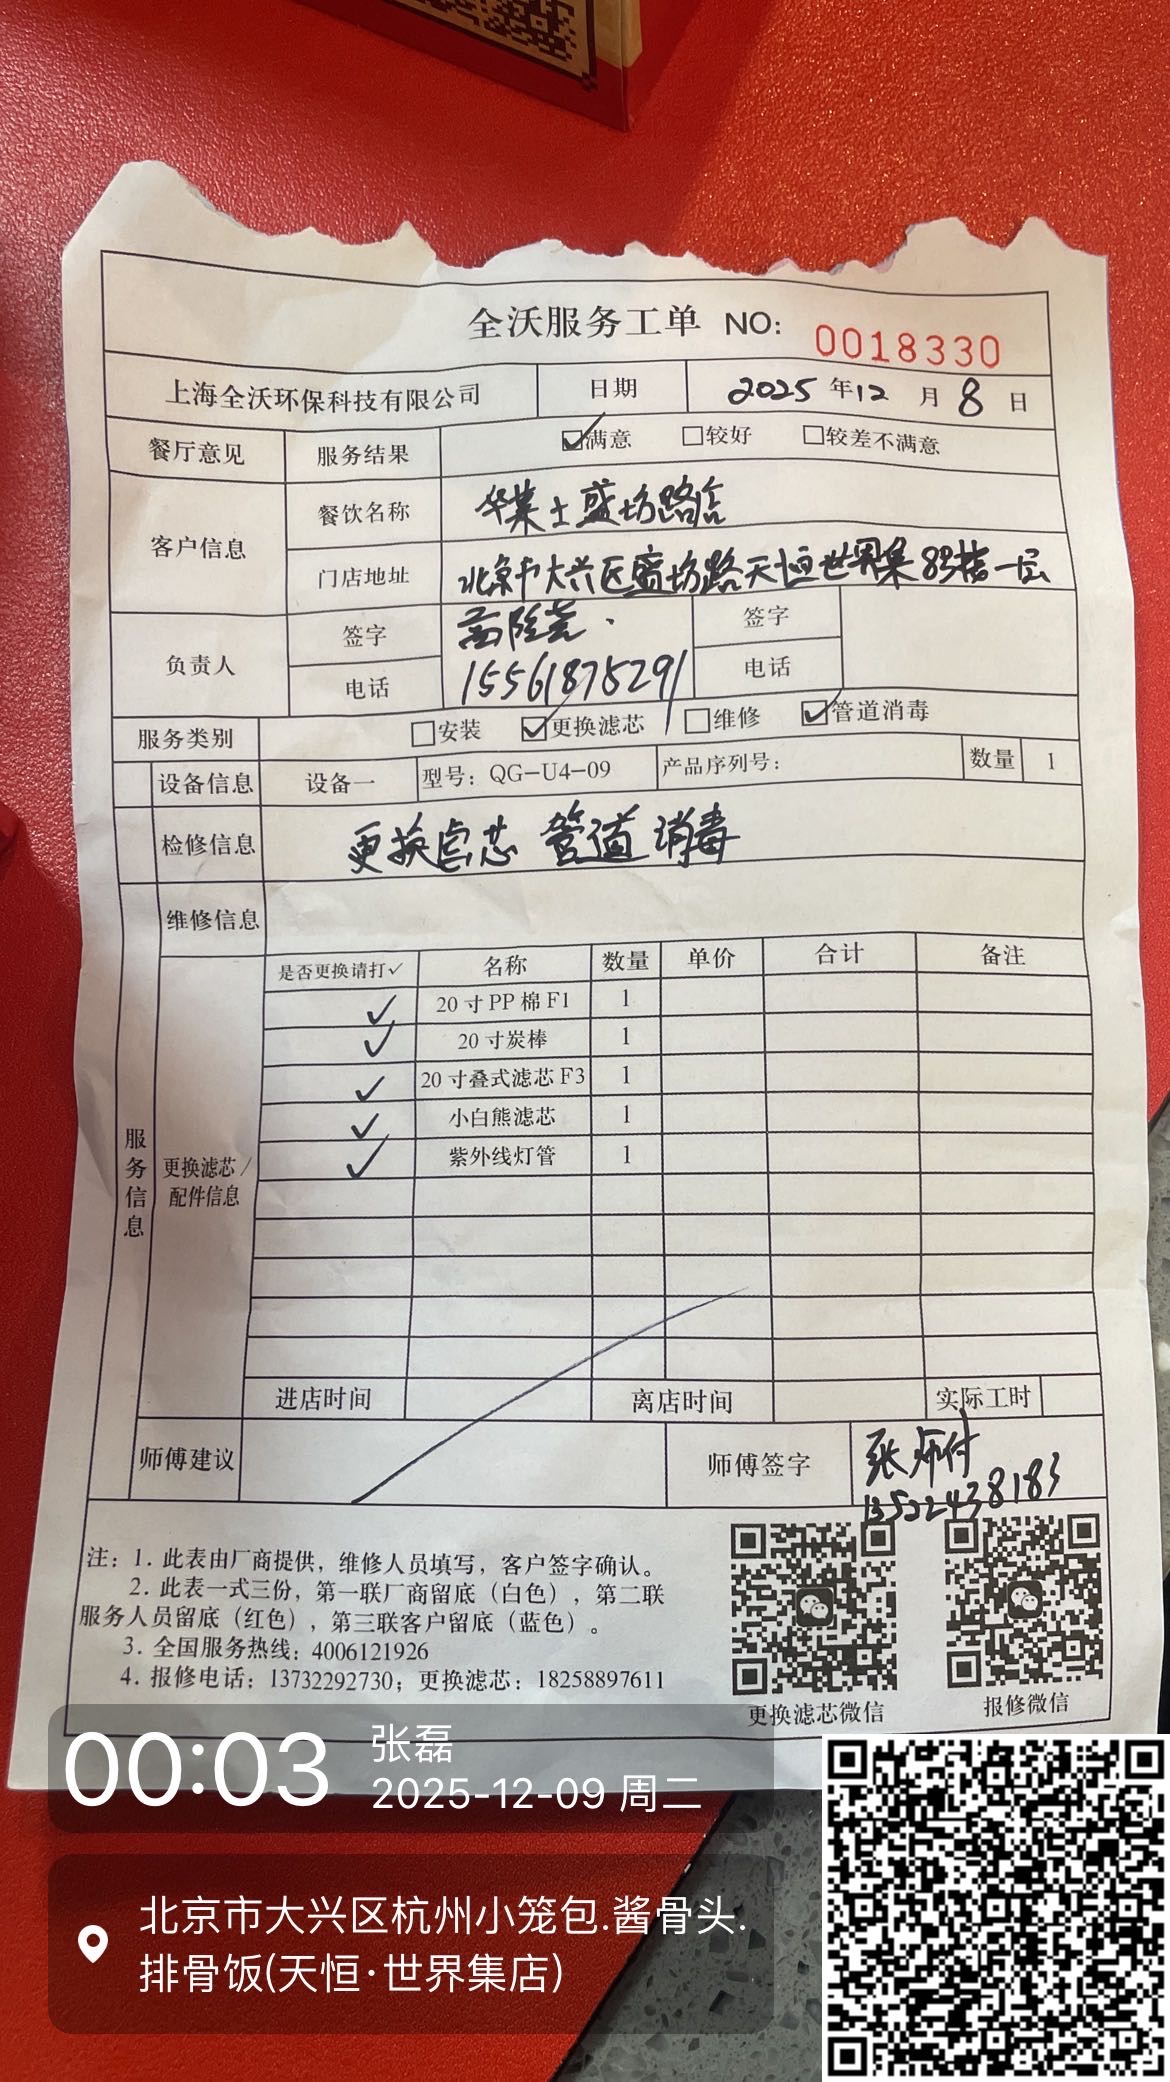 全沃服务工单 NO: 0018330
上海全沃环保科技有限公司 日期 2025年12月8日
餐厅意见 服务结果 ☑满意 □较好 □较差不满意
客户信息 餐饮名称 华莱士盛坊路店
门店地址 北京市大兴区盛坊路天恒世界集8号楼一层
负责人 签字 签字
电话 15561875291 电话
服务类别 □安装 ☑更换滤芯 □维修 ☑管道消毒
设备信息 设备一 型号：QG-U4-09 产品序列号： 数量 1
检修信息 更换虑芯 管道消毒
维修信息
服务信息
更换滤芯/配件信息
是否更换请打✓ 名称 数量 单价 合计 备注
✓ 20寸PP棉F1 1
✓ 20寸炭棒 1
✓ 20寸叠式滤芯F3 1
✓ 小白熊滤芯 1
✓ 紫外线灯管 1
进店时间 离店时间 实际工时
师傅建议 师傅签字 张师付
13522438183
注：1. 此表由厂商提供，维修人员填写，客户签字确认。
2. 此表一式三份，第一联厂商留底（白色），第二联
服务人员留底（红色），第三联客户留底（蓝色）。
3. 全国服务热线：4006121926
4. 报修电话：13732292730；更换滤芯：18258897611
更换滤芯微信 报修微信
00:03 张磊
2025-12-09 周二
北京市大兴区杭州小笼包.酱骨头.
排骨饭(天恒·世界集店)